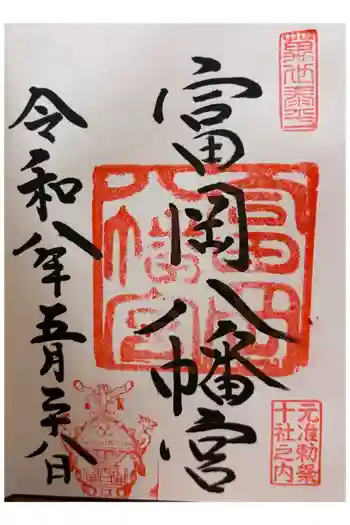 萬世泰平
富岡八幡宮
富岡八幡宮
元准勅祭
十社之内
令和八年五月二十八日